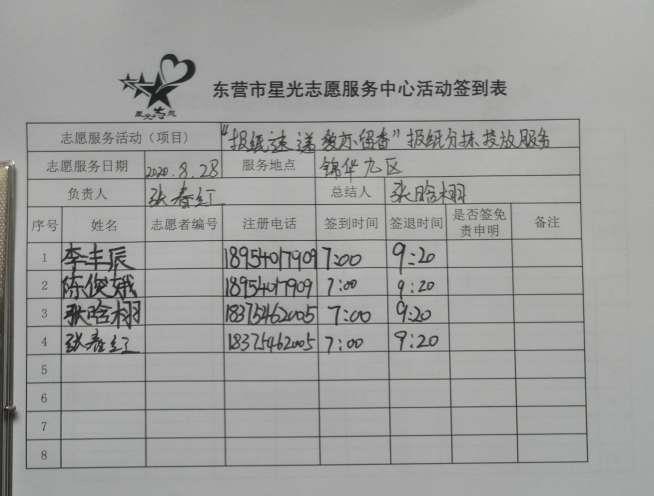 东营市星光志愿服务中心活动签到表
志愿服务活动（项目） “报纸速递 散沁留香”报纸分拣投放服务
志愿服务日期 2020.8.28 服务地点 锦华九区
负责人 张春红 总结人 耿晗栩
序号 姓名 志愿者编号 注册电话 签到时间 签退时间 是否签免责申明 备注
1 李丰辰 18954017909 7:00 9:20
2 陈俊娥 18954017909 7:00 9:20
3 耿晗栩 18375462005 7:00 9:20
4 张春红 18375462005 7:00 9:20
5
6
7
8